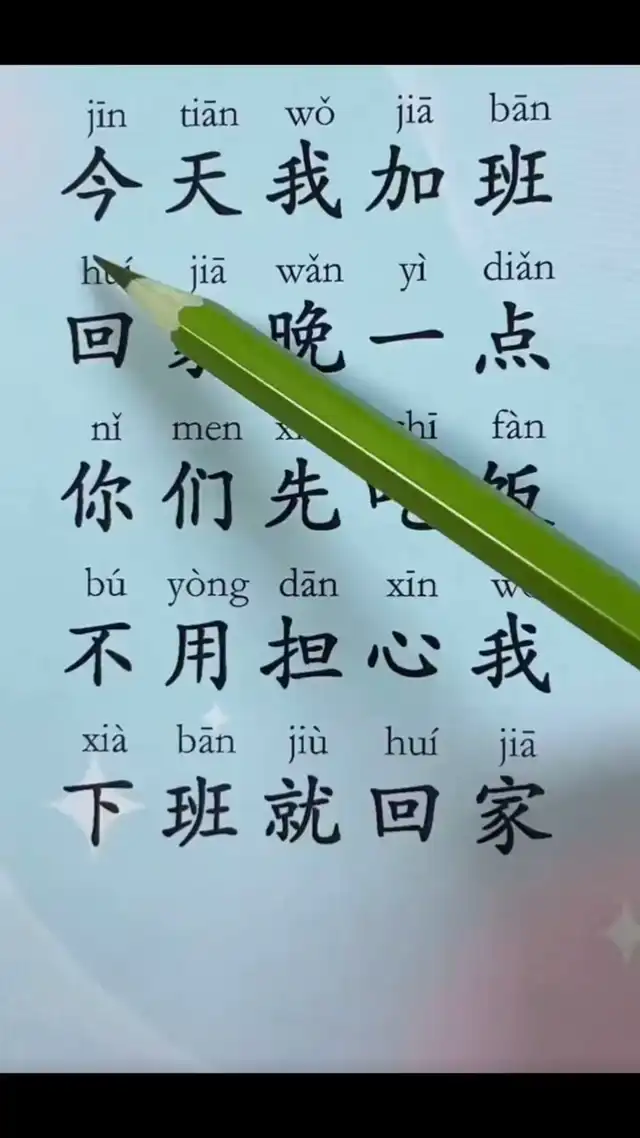 jīn tiān wǒ jiā bān
今天我加班
huí jiā wǎn yì diǎn
回家晚一点
nǐ men chī fàn
你们先吃饭
bú yòng dān xīn wǒ
不用担心我
xià bān jiù huí jiā
下班就回家